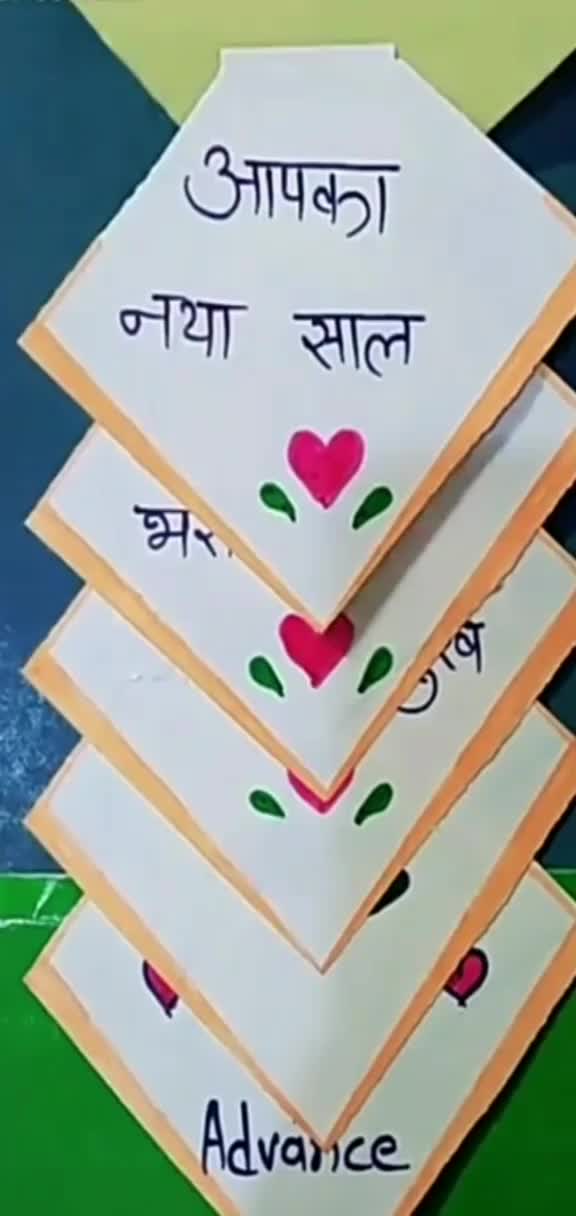 आपका
नया साल
Advance